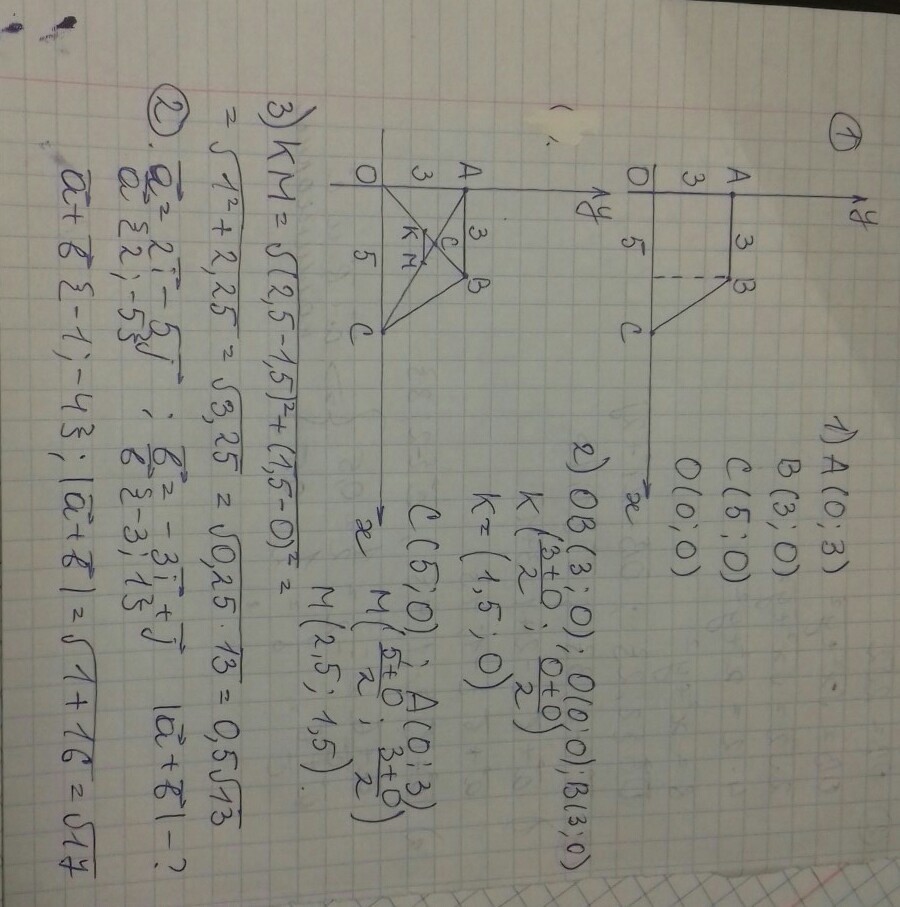 ①
y
A 3 B
3
O 5 C x
1) A(0; 3)
B(3; 0)
C(5; 0)
O(0; 0)
2) OB(3; 0); O(0; 0); B(3; 0)
K(3+0/2; 0+0/2)
K = (1,5; 0)
C(5; 0); A(0; 3)
M(5+0/2; 3+0/2)
M(2,5; 1,5).
y
A 3 B
3 C
K M
O 5 C x
3) KM = √(2,5-1,5)² + (1,5-0)² =
= √1² + 2,25 = √3,25 = √0,25 · 13 = 0,5√13
②. a⃗ = 2i⃗ - 5j⃗ ; b⃗ = -3i⃗ + j⃗ |a⃗ + b⃗| - ?
a⃗ {2; -5} b⃗ {-3; 1}
a⃗ + b⃗ {-1; -4}; |a⃗ + b⃗| = √1 + 16 = √17